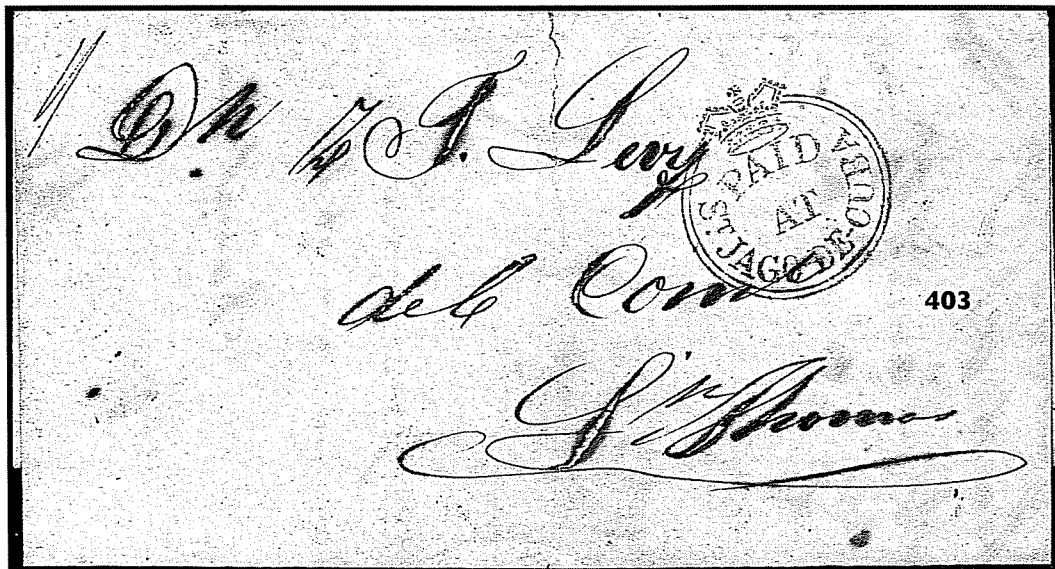 Dn
J. Levy
PAID
AT
ST JAGO-DE-CUBA
del Com
403
Sn Thomas